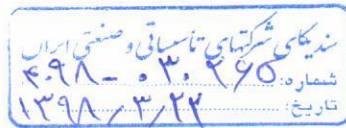 سندیکای شرکتهای تأسیساتی و صنعتی ایران
شماره: ۴۰۹۸-۰۳۰۲۶۵
تاریخ: ۱۳۹۸/۳/۲۳